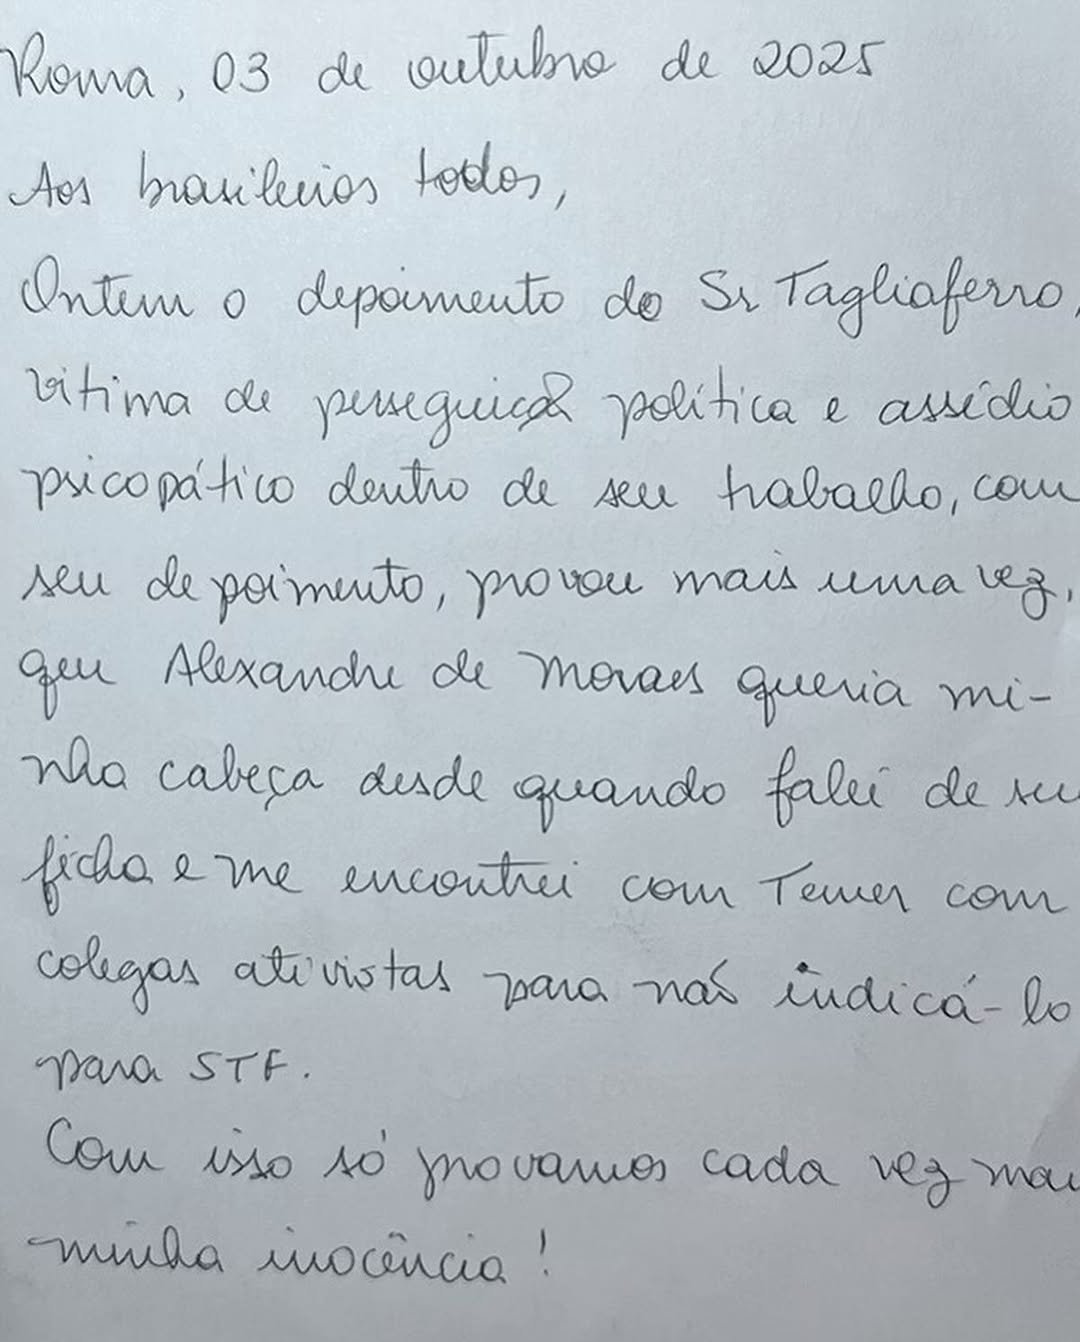 Roma, 03 de outubro de 2025
Aos brasileiros todos,
Ontem o depoimento do Sr Tagliaferro,
vítima de perseguição política e assédio
psicopático dentro de seu trabalho, com
seu depoimento, provou mais uma vez,
que Alexandre de Moraes queria mi-
nha cabeça desde quando falei de su
ficha e me encontrei com Temer com
colegas ativistas para não indicá-lo
para STF.
Com isso só provamos cada vez mai
minha inocência!